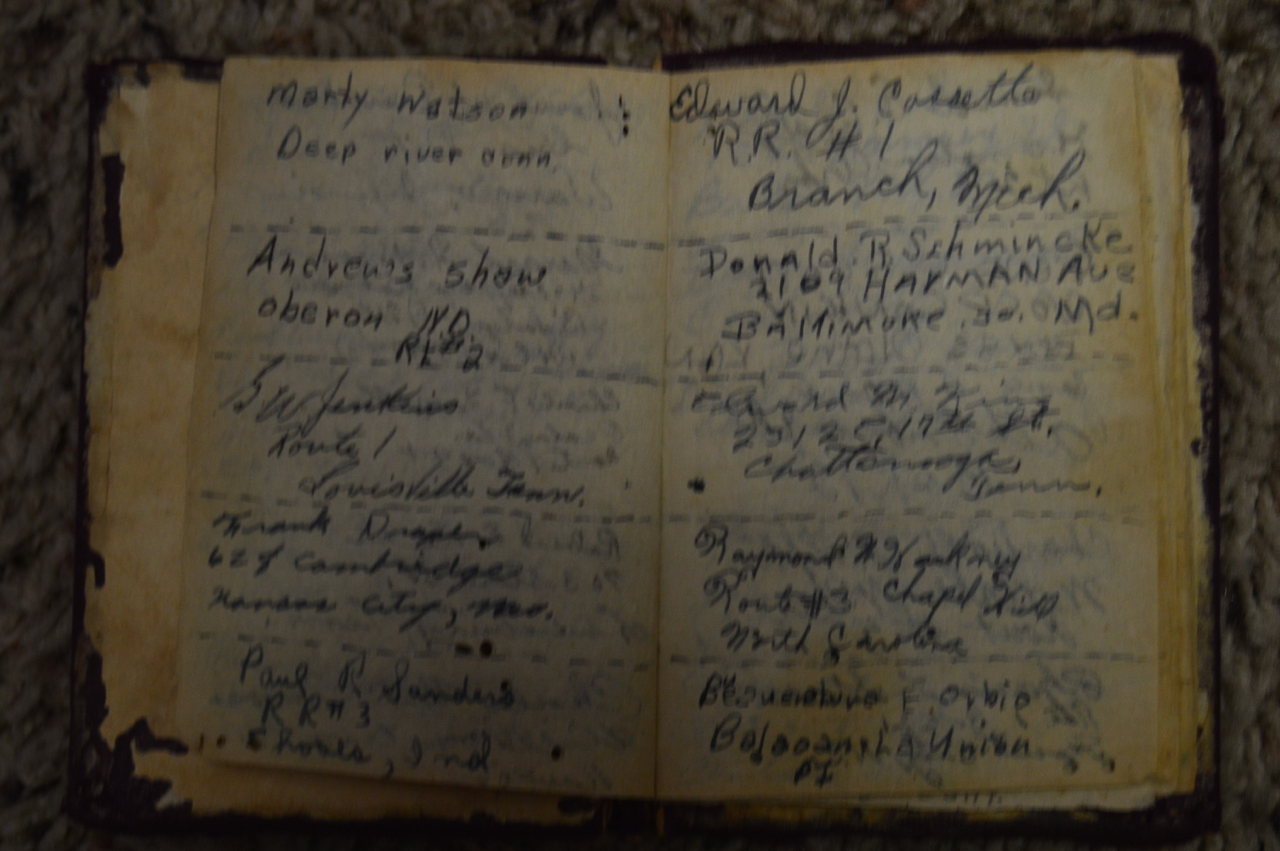 Marty Watson
Deep river
Andrew's Shaw
oberon ND
Rt #2
Jenkins
Route 1
Louisville Tenn.
Frank Draper
Cambridge
Kansas City, Mo.
Paul R Sanders
RR #3
Shoals, Ind
Edward J. Cossette
R.R. #1
Branch, Mich.
Donald R Schmincke
2109 HARMAN Ave
BAltimoRe 30. Md.
Edward M. King
17th St.
Chattanooga
Tenn.
Raymond
Route #3 Chapel Hill
North Carolina
F. Orbie
Union
PI